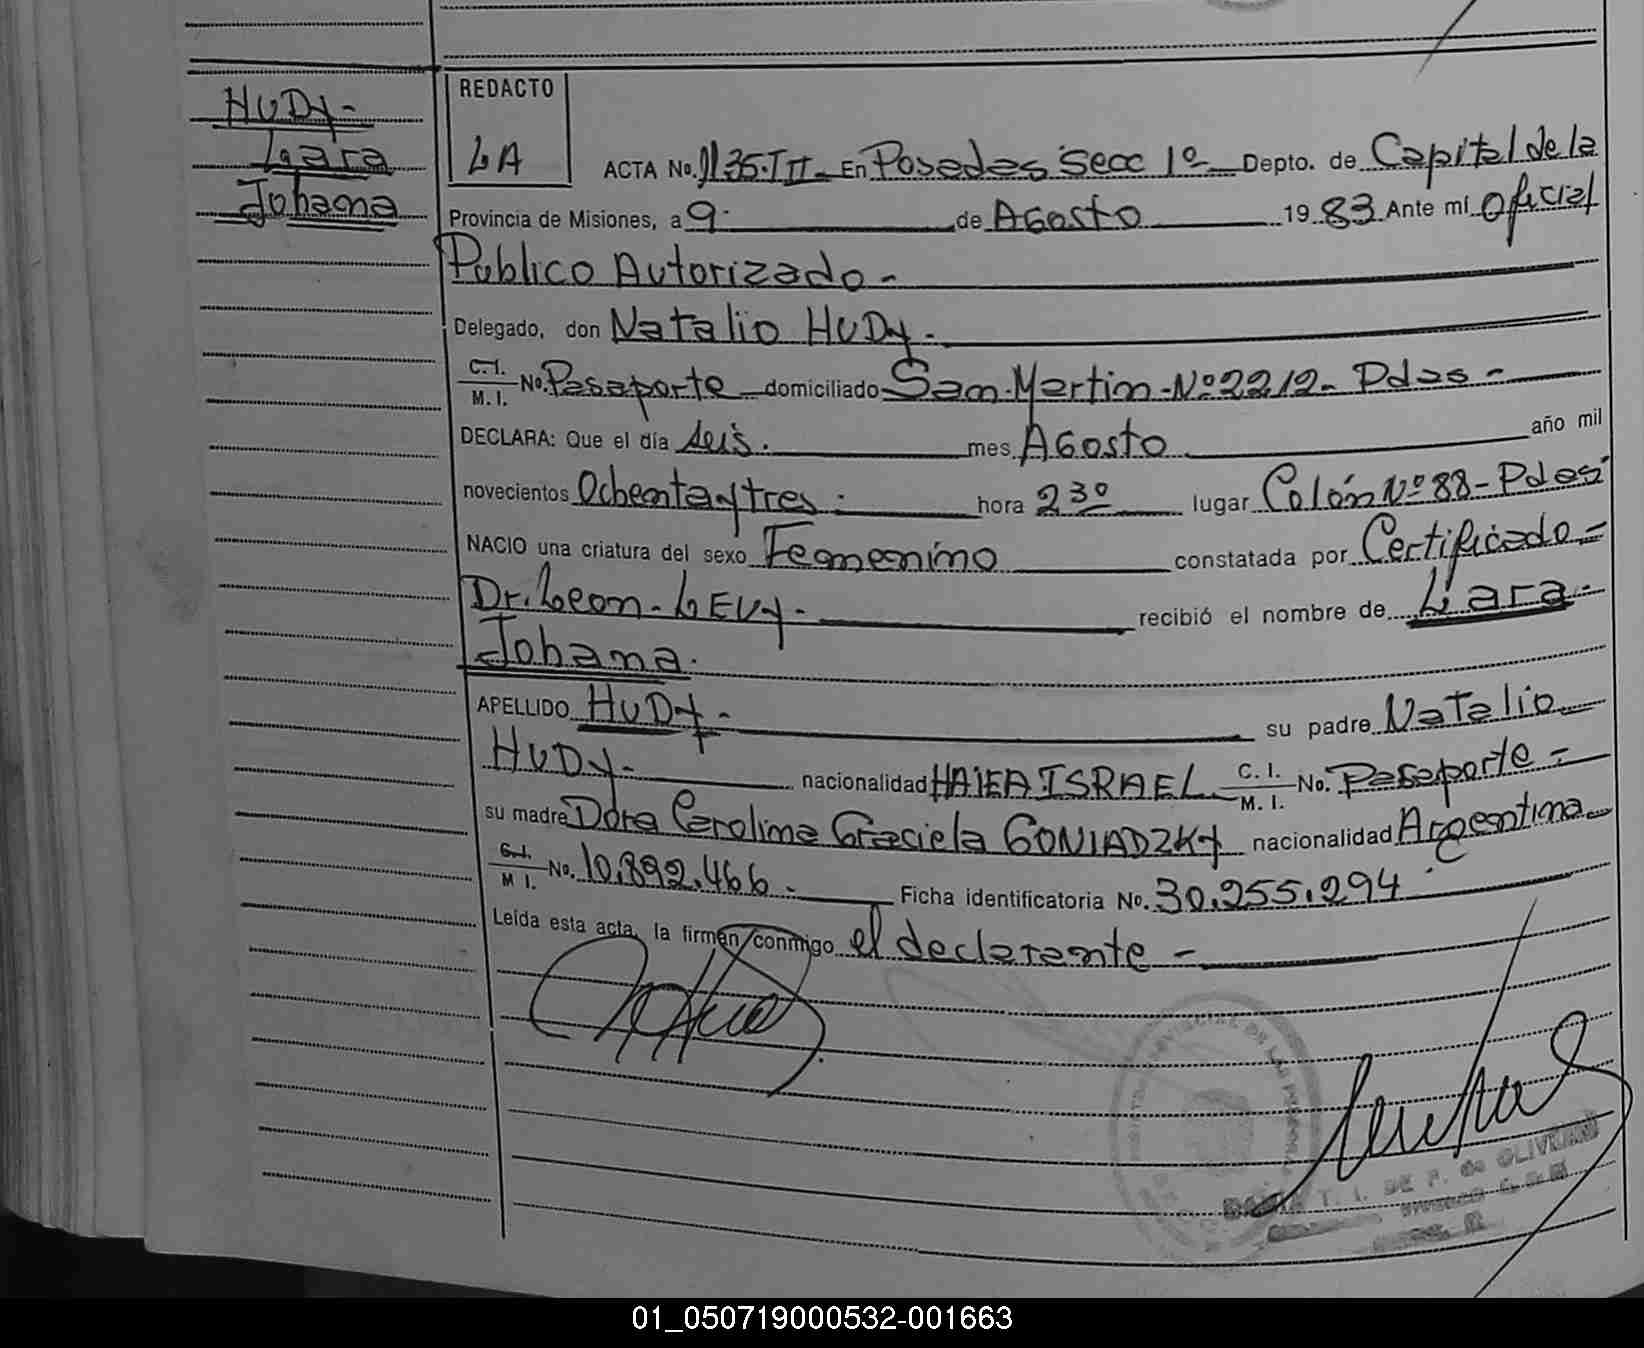 HUDY-
Lara
Johana
REDACTO
LA
ACTA No. 1135·III- En Posadas Secc 1º Depto. de Capital de la
Provincia de Misiones, a 9· de Agosto 1983 Ante mí Oficial
Publico Autorizado-
Delegado, don Natalio HUDY-
C.I.
M.I. No. Pasaporte domiciliado San Martin-Nº 2212- Pdas-
DECLARA: Que el día seis. mes Agosto año mil
novecientos Ochenta y tres: hora 23º lugar Colón Nº 88-Pdas
NACIO una criatura del sexo Femenino constatada por Certificado=
Dr. Leon-LEVY- recibió el nombre de Lara
Johana.
APELLIDO HUDY- su padre Natalio
HUDY- nacionalidad HAIFA ISRAEL C.I.
M.I. No. Pasaporte=
su madre Dora Carolina Graciela GONIADZKY nacionalidad Argentina
C.I.
M I. No. 10.892.466- Ficha identificatoria No. 30.255.294
Leída esta acta, la firman conmigo el declarante-
T. I. DE F. de OLIVEIRA
01_050719000532-001663